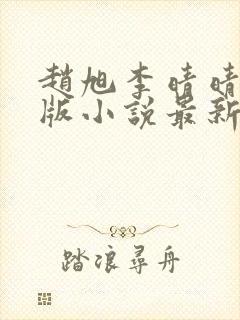 趙旭李晴晴
版小說最新
踏浪尋舟